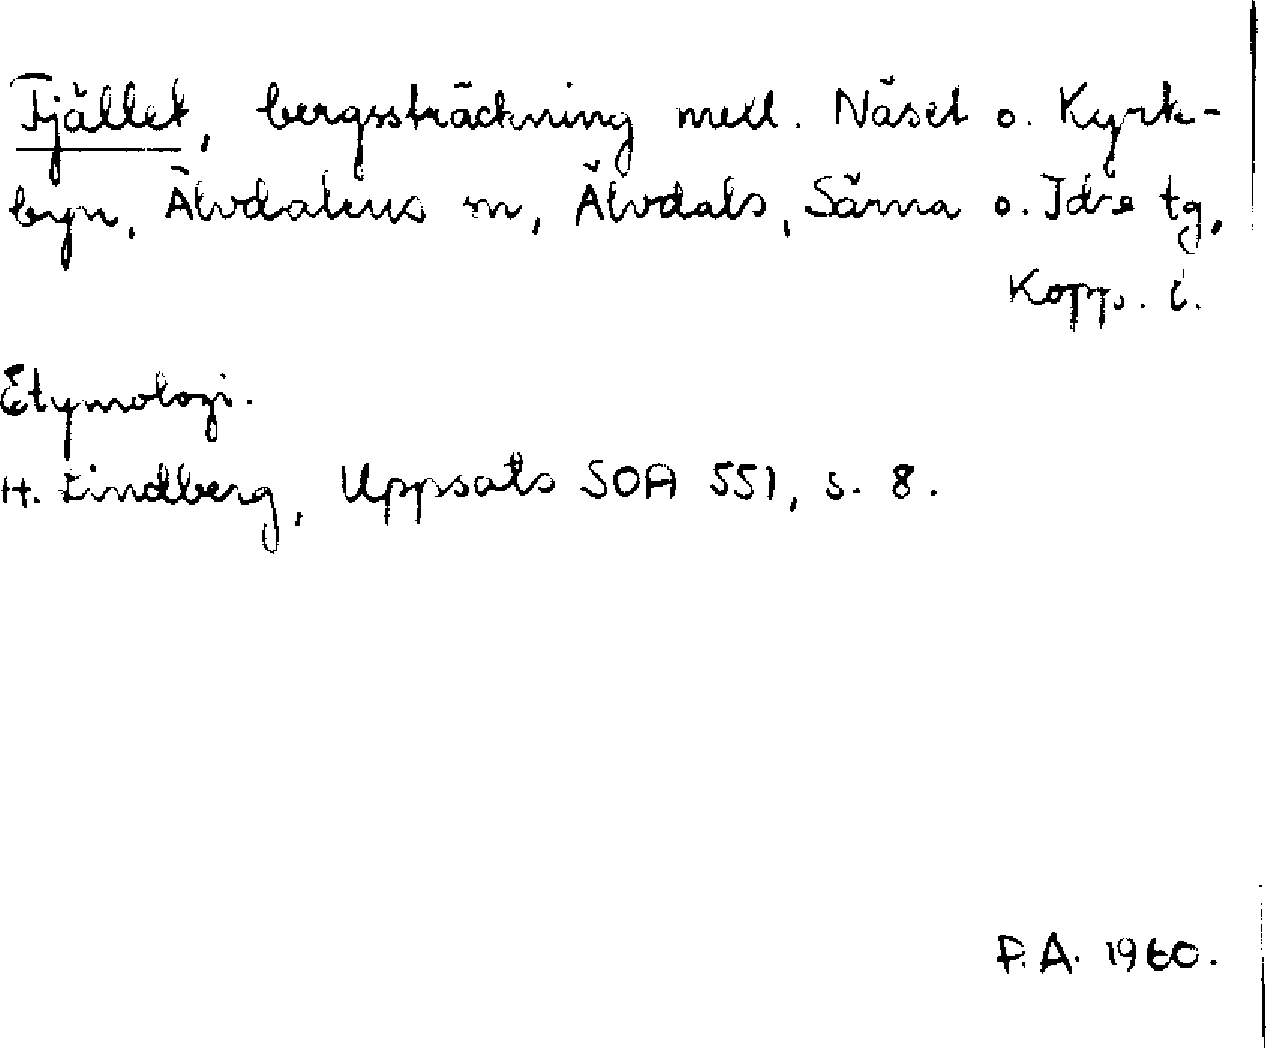 Fjället, bergssträckning mell. Näset o. Kyrk-
byn, Älvdalens sn, Älvdals, Särna o. Idre tg,
Kopp. l.
Etymologi.
H. Lindberg, Uppsats SOA 551, s. 8.
P.A. 1960.